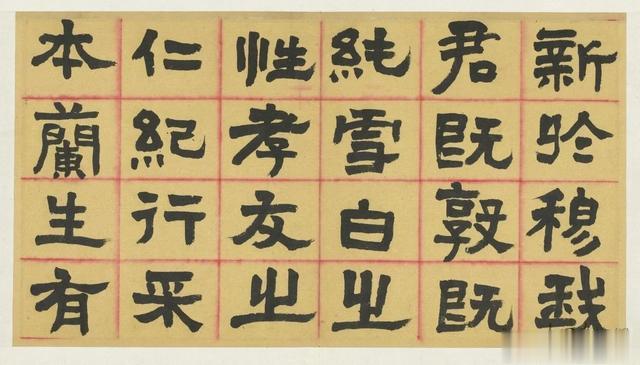 新於穆我
君既敦既
純雪白之
性孝友之
仁紀行来
本蘭生有